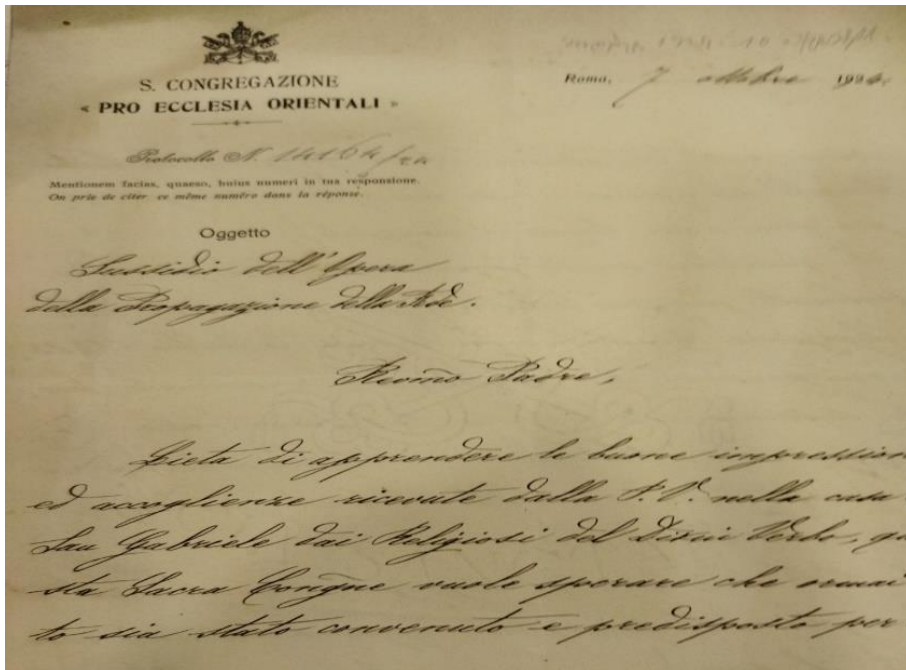 S. CONGREGAZIONE
« PRO ECCLESIA ORIENTALI »
Roma, 7 ottobre 1924.
Protocollo N. 14164/24
Mentionem facias, quaeso, huius numeri in tua responsione.
On prie de citer ce même numéro dans la réponse.
Oggetto
Sussidio dell'Opera
della Propagazione della Fede.
Revmo Padre,
Lieta di apprendere le buone impression
ed accoglienze ricevute dalla P. V. nella casa
San Gabriele dai Religiosi del Divin Verbo, que
sta Sacra Congne vuole sperare che ormai
to sia stato convenuto e predisposto per